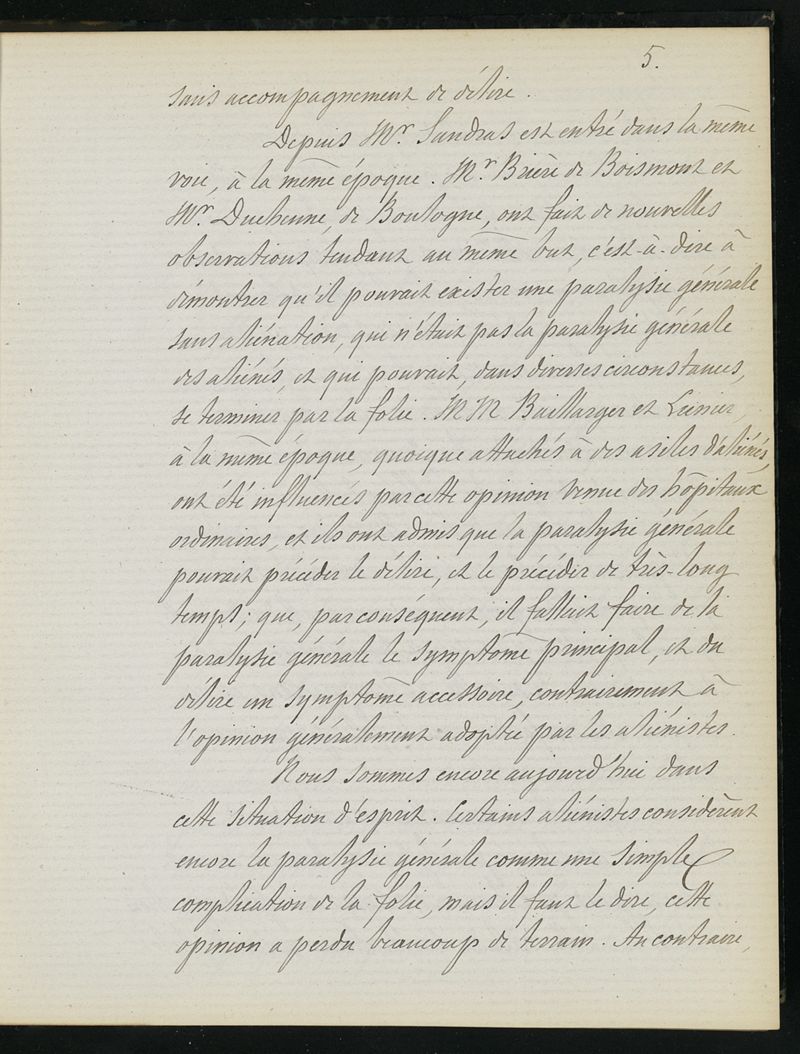 5.
sans accompagnement de délire.
Depuis Mr. Sandras est entré dans la même
voie, à la même époque. Mr. Brière de Boismont et
Mr. Duchenne, de Boulogne, ont fait de nouvelles
observations tendant au même but, c'est-à-dire à
démontrer qu'il pouvait exister une paralysie générale
sans aliénation, qui n'était pas la paralysie générale
des aliénés, et qui pouvait, dans diverses circonstances,
se terminer par la folie. MM Baillarger et Lunier,
à la même époque, quoique attachés à des asiles d'aliénés,
ont été influencés par cette opinion venue des hôpitaux
ordinaires, et ils ont admis que la paralysie générale
pouvait précéder le délire, et le précéder de très-long
temps; que, par conséquent, il fallait faire de la
paralysie générale le symptôme principal, et du
délire un symptôme accessoire, contrairement à
l'opinion généralement adoptée par les aliénistes.
Nous sommes encore aujourd'hui dans
cette situation d'esprit. Certains aliénistes considèrent
encore la paralysie générale comme une simple
complication de la folie, mais il faut le dire, cette
opinion a perdu beaucoup de terrain. Au contraire,